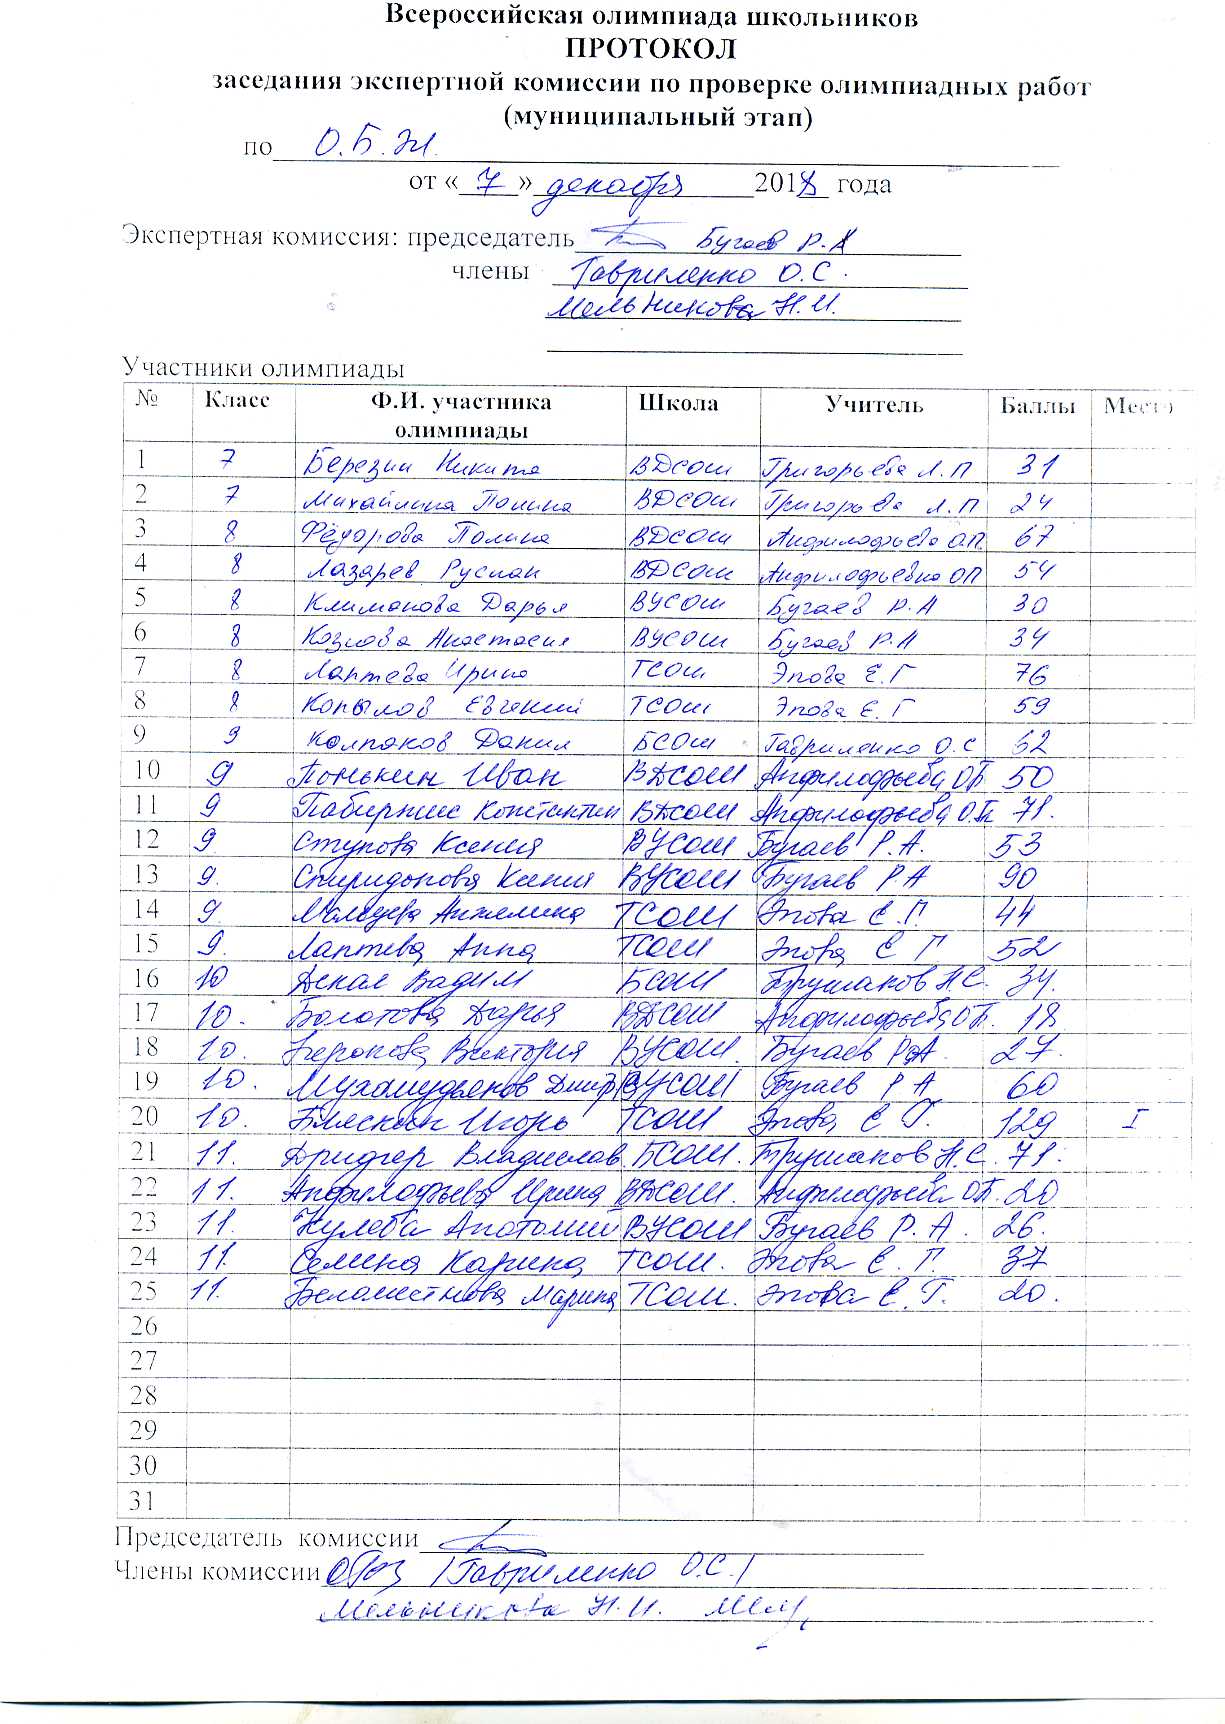 Всероссийская олимпиада школьников
ПРОТОКОЛ
заседания экспертной комиссии по проверке олимпиадных работ
(муниципальный этап)
по О.Б.Ж.
от « 7 » декабря 2018 года
Экспертная комиссия: председатель Бугаев Р.А
члены Гавриленко О.С.
Мельникова Н.И.
Участники олимпиады
№ Класс Ф.И. участника олимпиады Школа Учитель Баллы Место
1 7 Березин Никита ВДСОШ Григорьева Л.П 31
2 7 Михайлина Полина ВДСОШ Григорьева Л.П 24
3 8 Фёдорова Полина ВДСОШ Анфилофьева О.П. 67
4 8 Лазарев Руслан ВДСОШ Анфилофьевна ОП 54
5 8 Климанова Дарья ВУСОШ Бугаев Р.А 30
6 8 Козлова Анастасия ВУСОШ Бугаев Р.А 34
7 8 Лаптева Ирина ТСОШ Эпова Е.Г 76
8 8 Копылов Евгений ТСОШ Эпова Е.Г 59
9 9 Колпаков Данил БСОШ Гавриленко О.С 62
10 9 Понькин Иван ВДСОШ Анфилофьева ОП 50
11 9 Константин ВДСОШ Анфилофьева О.П. 71.
12 9 Ступова Ксения ВУСОШ Бугаев Р.А. 53
13 9. Спиридонова Ксения ВУСОШ Бугаев РА 90
14 9. Анжелина ТСОШ Эпова Е.Г. 44
15 9. Лаптева Анна ТСОШ Эпова Е Г 52
16 10 Вадим БСОШ Трушаков Н.С. 34.
17 10. Болотова Дарья ВДСОШ Анфилофьева ОП. 18
18 10. Виктория ВУСОШ. Бугаев Р.А. 27.
19 10. ВУСОШ Бугаев Р А 60
20 10. Игорь ТСОШ Эпова Е Г. 129 I
21 11. Владислав БСОШ. Трушаков Н.С. 71.
22 11. Анфилофьева Ирина ВДСОШ. Анфилофьева ОП. 20
23 11. Кулеба Анатолий ВУСОШ Бугаев Р. А. 26.
24 11. Семина Карина ТСОШ. Эпова Е. Г. 37
25 11. Беломестнова Марина ТСОШ. Эпова Е.Г. 20.
26
27
28
29
30
31
Председатель комиссии
Члены комиссии /Гавриленко О.С./
Мельникова Н.И.